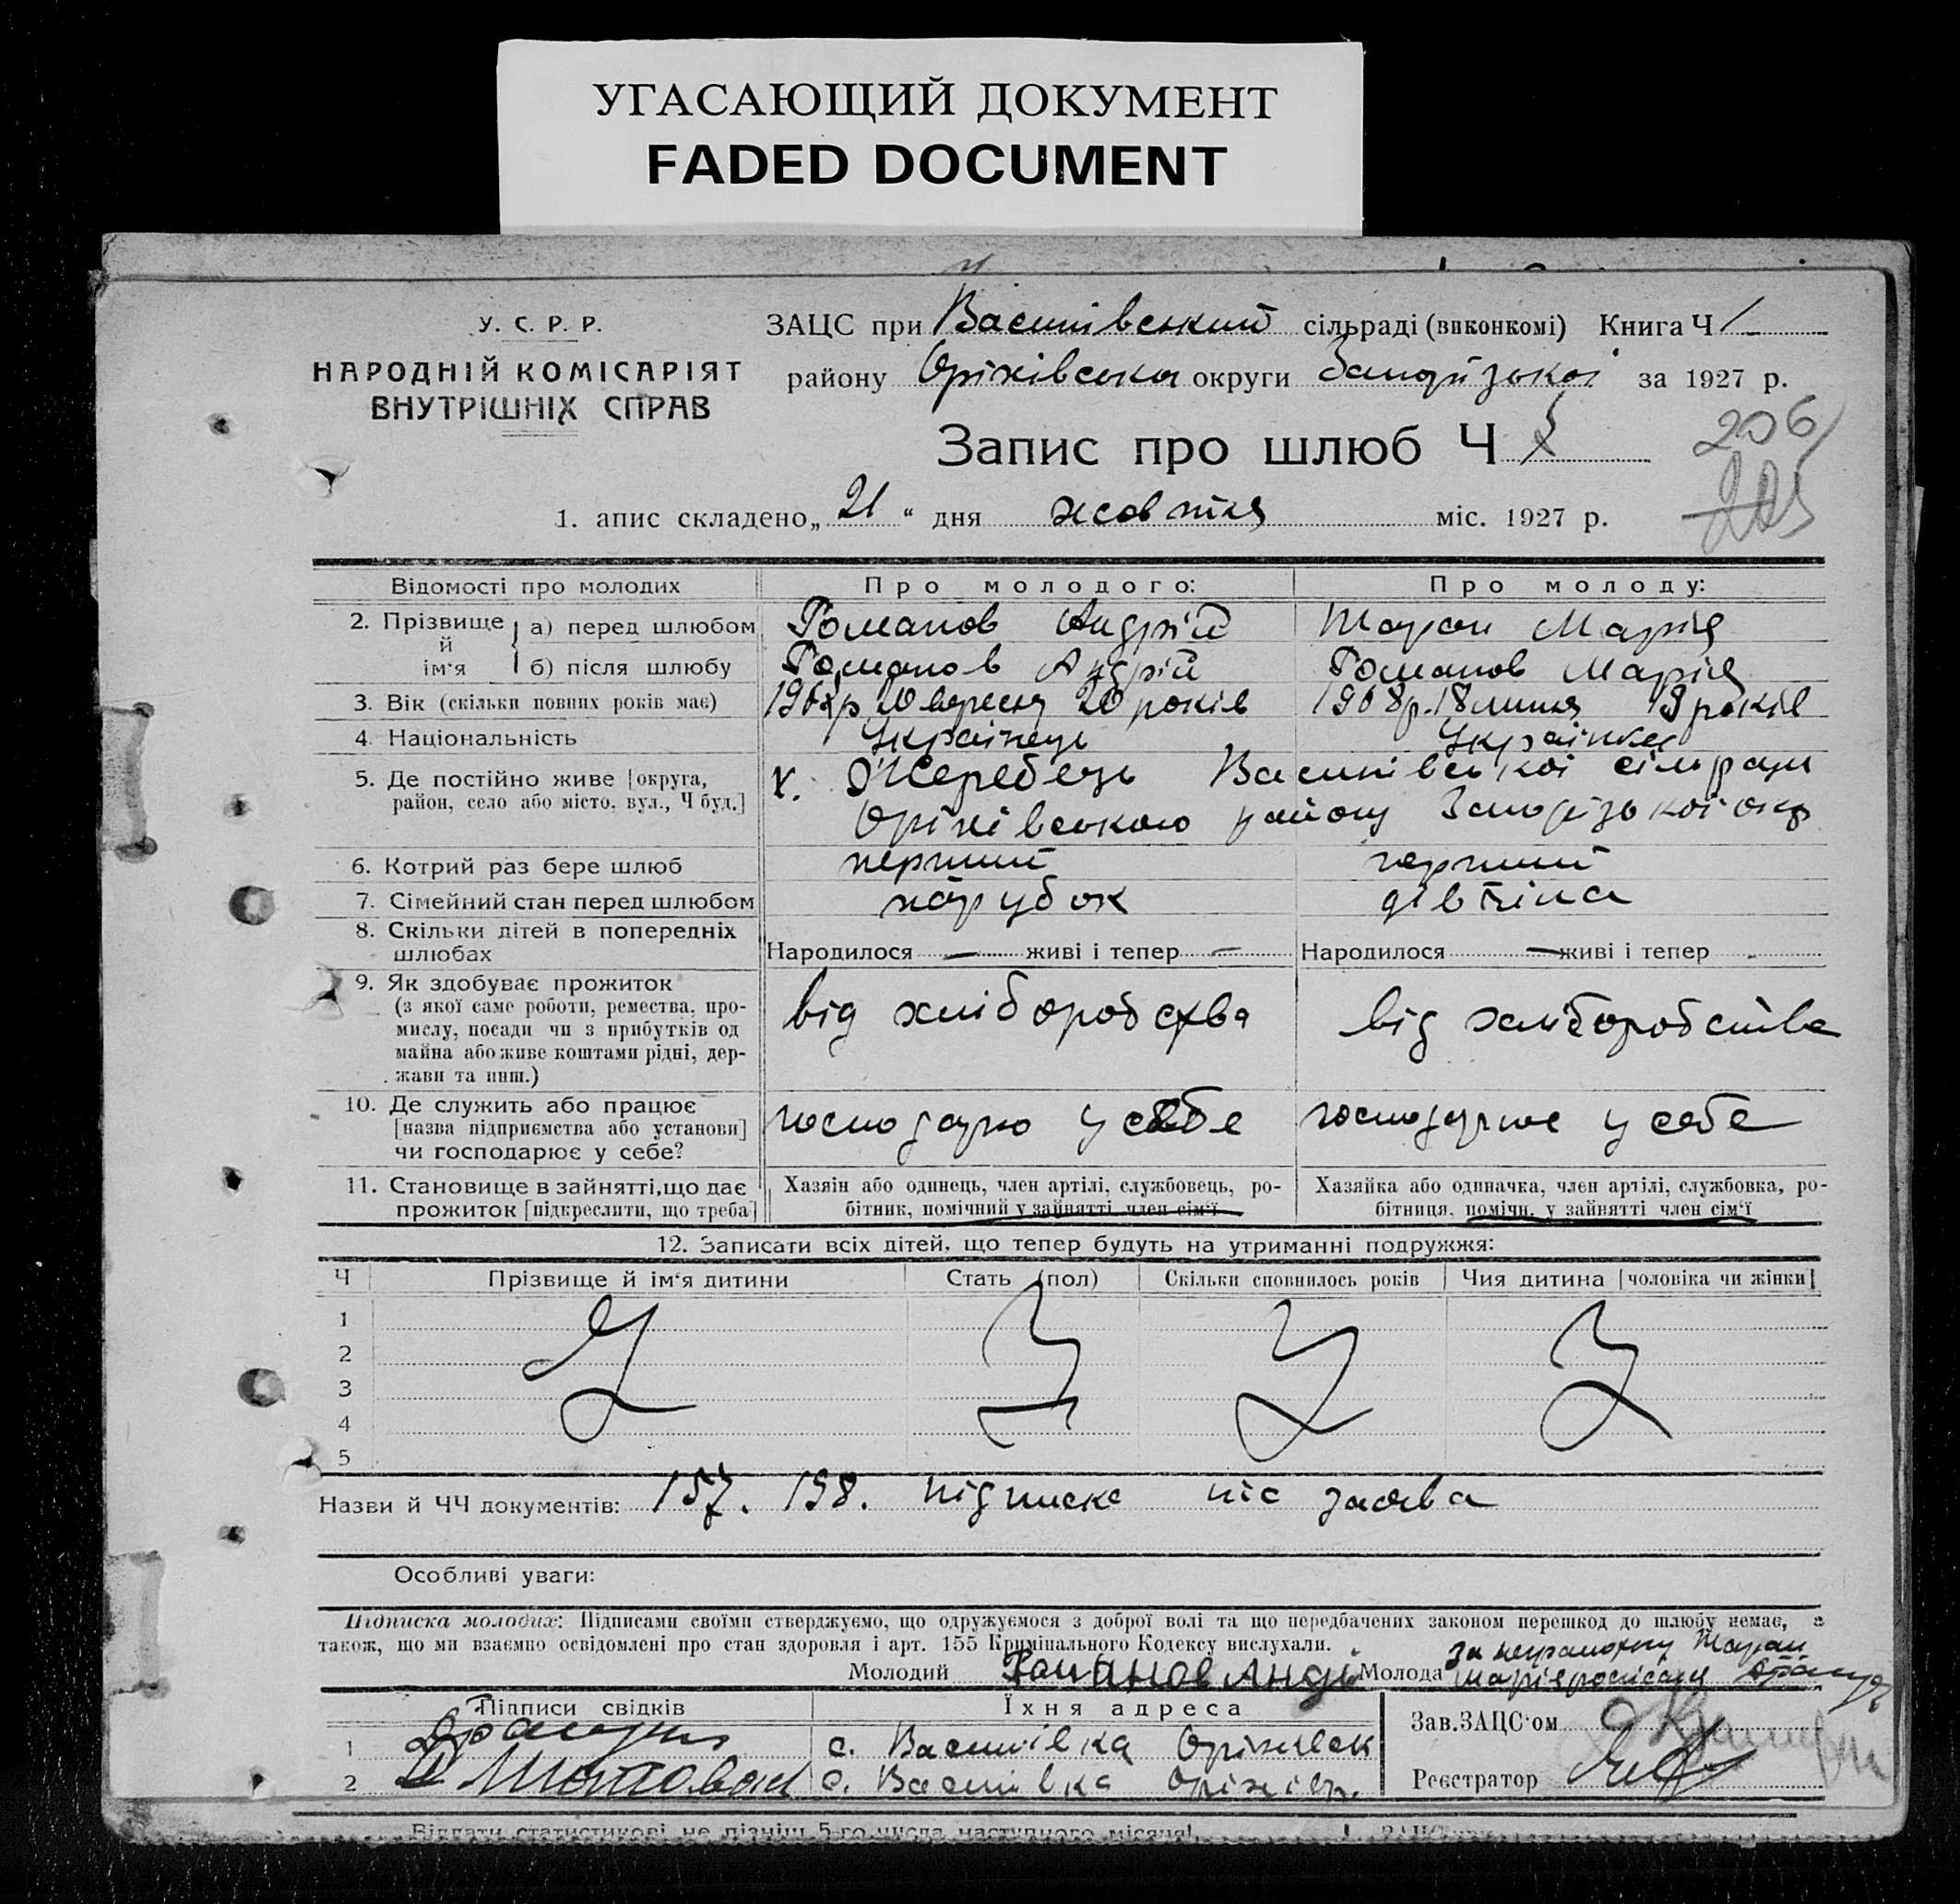 УГАСАЮЩИЙ ДОКУМЕНТ
FADED DOCUMENT
У. С. Р. Р.
НАРОДНІЙ КОМІСАРІЯТ
ВНУТРІШНІХ СПРАВ
ЗАЦС при Василівський сільраді (виконкомі) Книга Ч 1
району Оріхівська округи Запорізької за 1927 р.
Запис про шлюб Ч
206
205
1. апис складено „21“ дня жовтня міс. 1927 р.
Відомості про молодих Про молодого: Про молоду:
2. Прізвище й ім‘я а) перед шлюбом Романов Андрій Таран Марія
б) після шлюбу Романов Андрій Романов Марія
3. Вік (скільки повних років має) 20 вересня 20 років 1908р. 18 липня 19 років
4. Національність Українець Українка
5. Де постійно живе [округа, район, село або місто, вул., Ч буд.]
х. Жеребець Василівської сільради
Оріхівського району Запорізької окр
6. Котрий раз бере шлюб перший перший
7. Сімейний стан перед шлюбом парубок дівчина
8. Скільки дітей в попередніх шлюбах Народилося — живі і тепер — Народилося — живі і тепер
9. Як здобуває прожиток
(з якої саме роботи, ремества, про-
мислу, посади чи з прибутків од
майна або живе коштами рідні, дер-
жави та инш.)
від хліборобства від хліборобства
10. Де служить або працює
[назва підприємства або установи]
чи господарює у себе?
господарю у себе господарює у себе
11. Становище в зайнятті, що дає
прожиток [підкреслити, що треба]
Хазяїн або одинець, член артілі, службовець, ро-
бітник, помічний у зайнятті член сім‘ї
Хазяйка або одиначка, член артілі, службовка, ро-
бітниця, помічн. у зайнятті член сім‘ї
12. Записати всіх дітей, що тепер будуть на утриманні подружжя:
Ч Прізвище й ім‘я дитини Стать (пол) Скільки сповнилось років Чия дитина [чоловіка чи жінки]
1
2
3
4
5
Назви й ЧЧ документів: 157. 158. підписка заява
Особливі уваги:
Підписка молодих: Підписами своїми стверджуємо, що одружуємося з доброї волі та що передбачених законом перешкод до шлюбу немає, а
також, що ми взаємно освідомлені про стан здоровля і арт. 155 Кримінального Кодексу вислухали.
Молодий Романов Анд Молода за неграмотну Таран
Підписи свідків Їхня адреса
1 с. Василівка Оріхівськ
2 с. Василівка Оріхів.
Зав. ЗАЦС‘ом
Реєстратор
Віддати статистикові не пізніш 5-го числа наступного місяця!